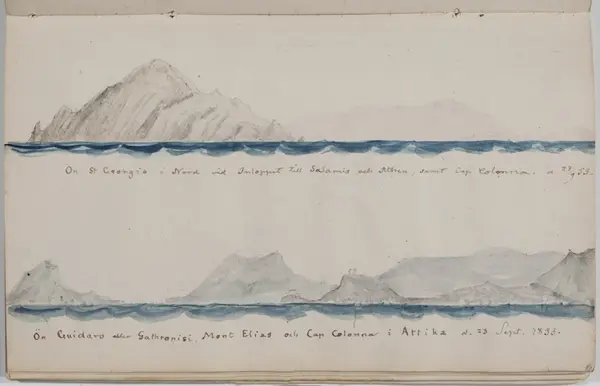 Ön St Georgio i Nord vid Inloppet till Salamis och Athen, samt Cap Colonna. d. 23/9 53.
Ön Guidaro eller Gathronisi, Mont Elias och Cap Colonna i Attika d. 23 Sept. 1853.